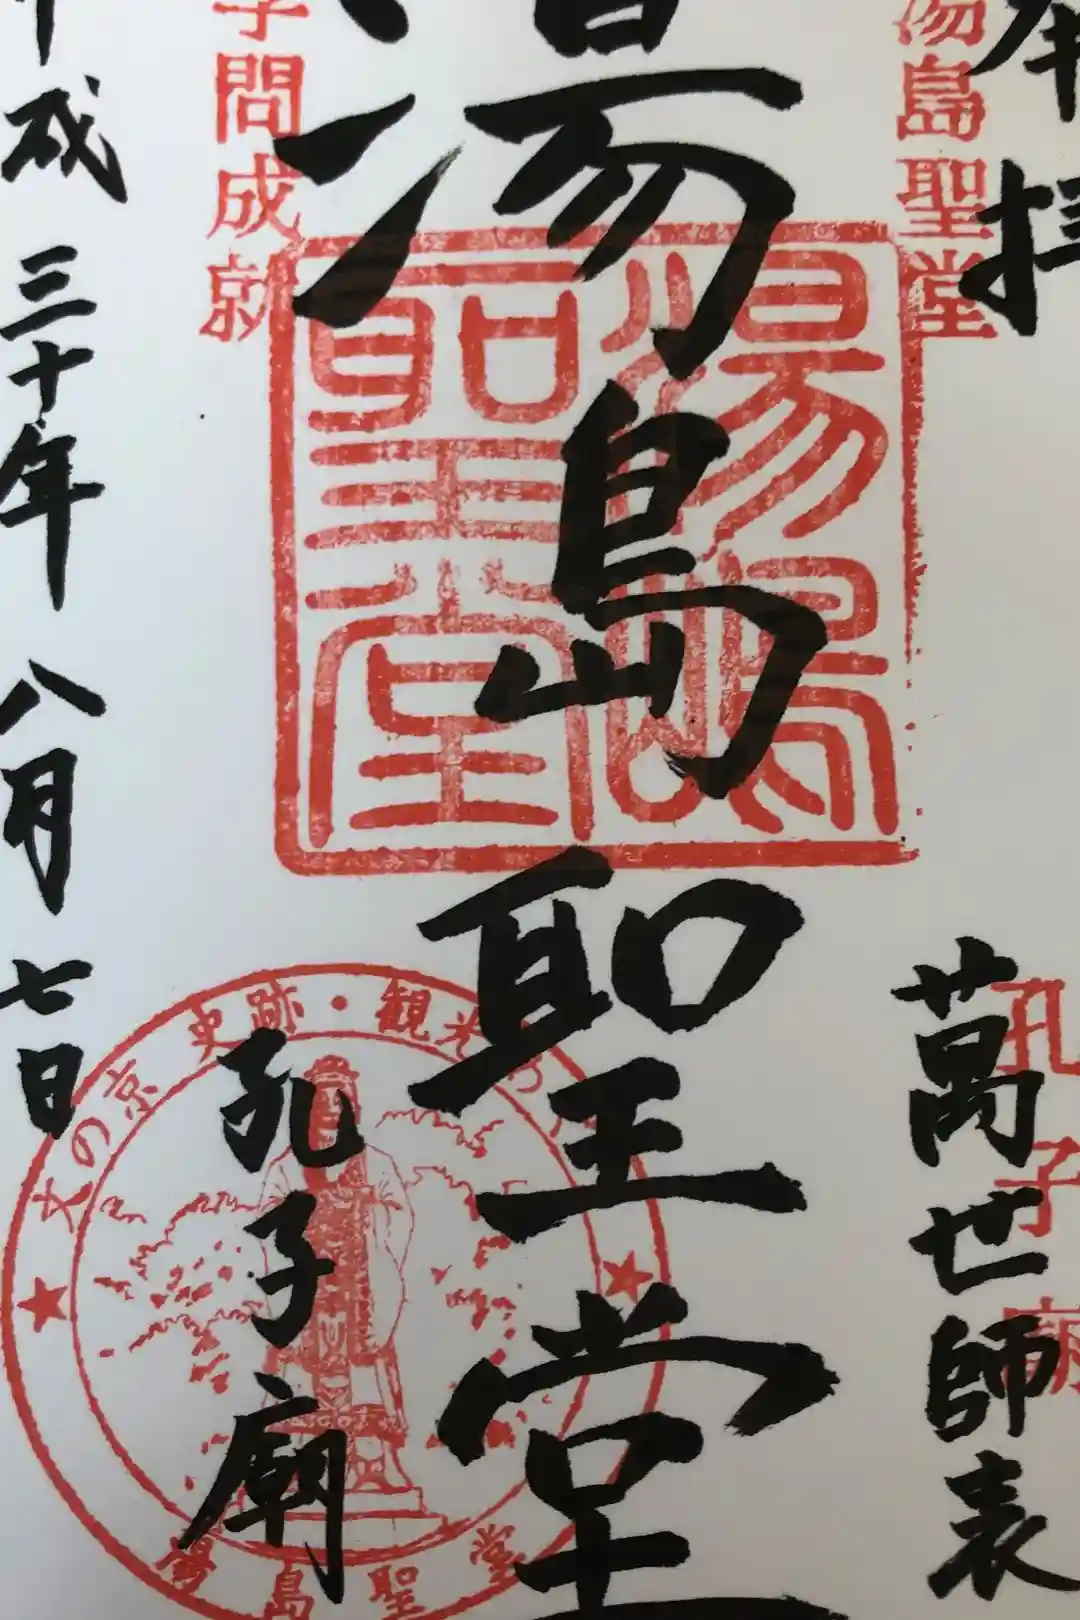 奉拝
湯島聖堂
萬世師表
孔子廟
湯島聖堂
湯島聖堂
学問成就
孔子廟
平成三十年八月七日
文の京 史跡・観光
湯島聖堂